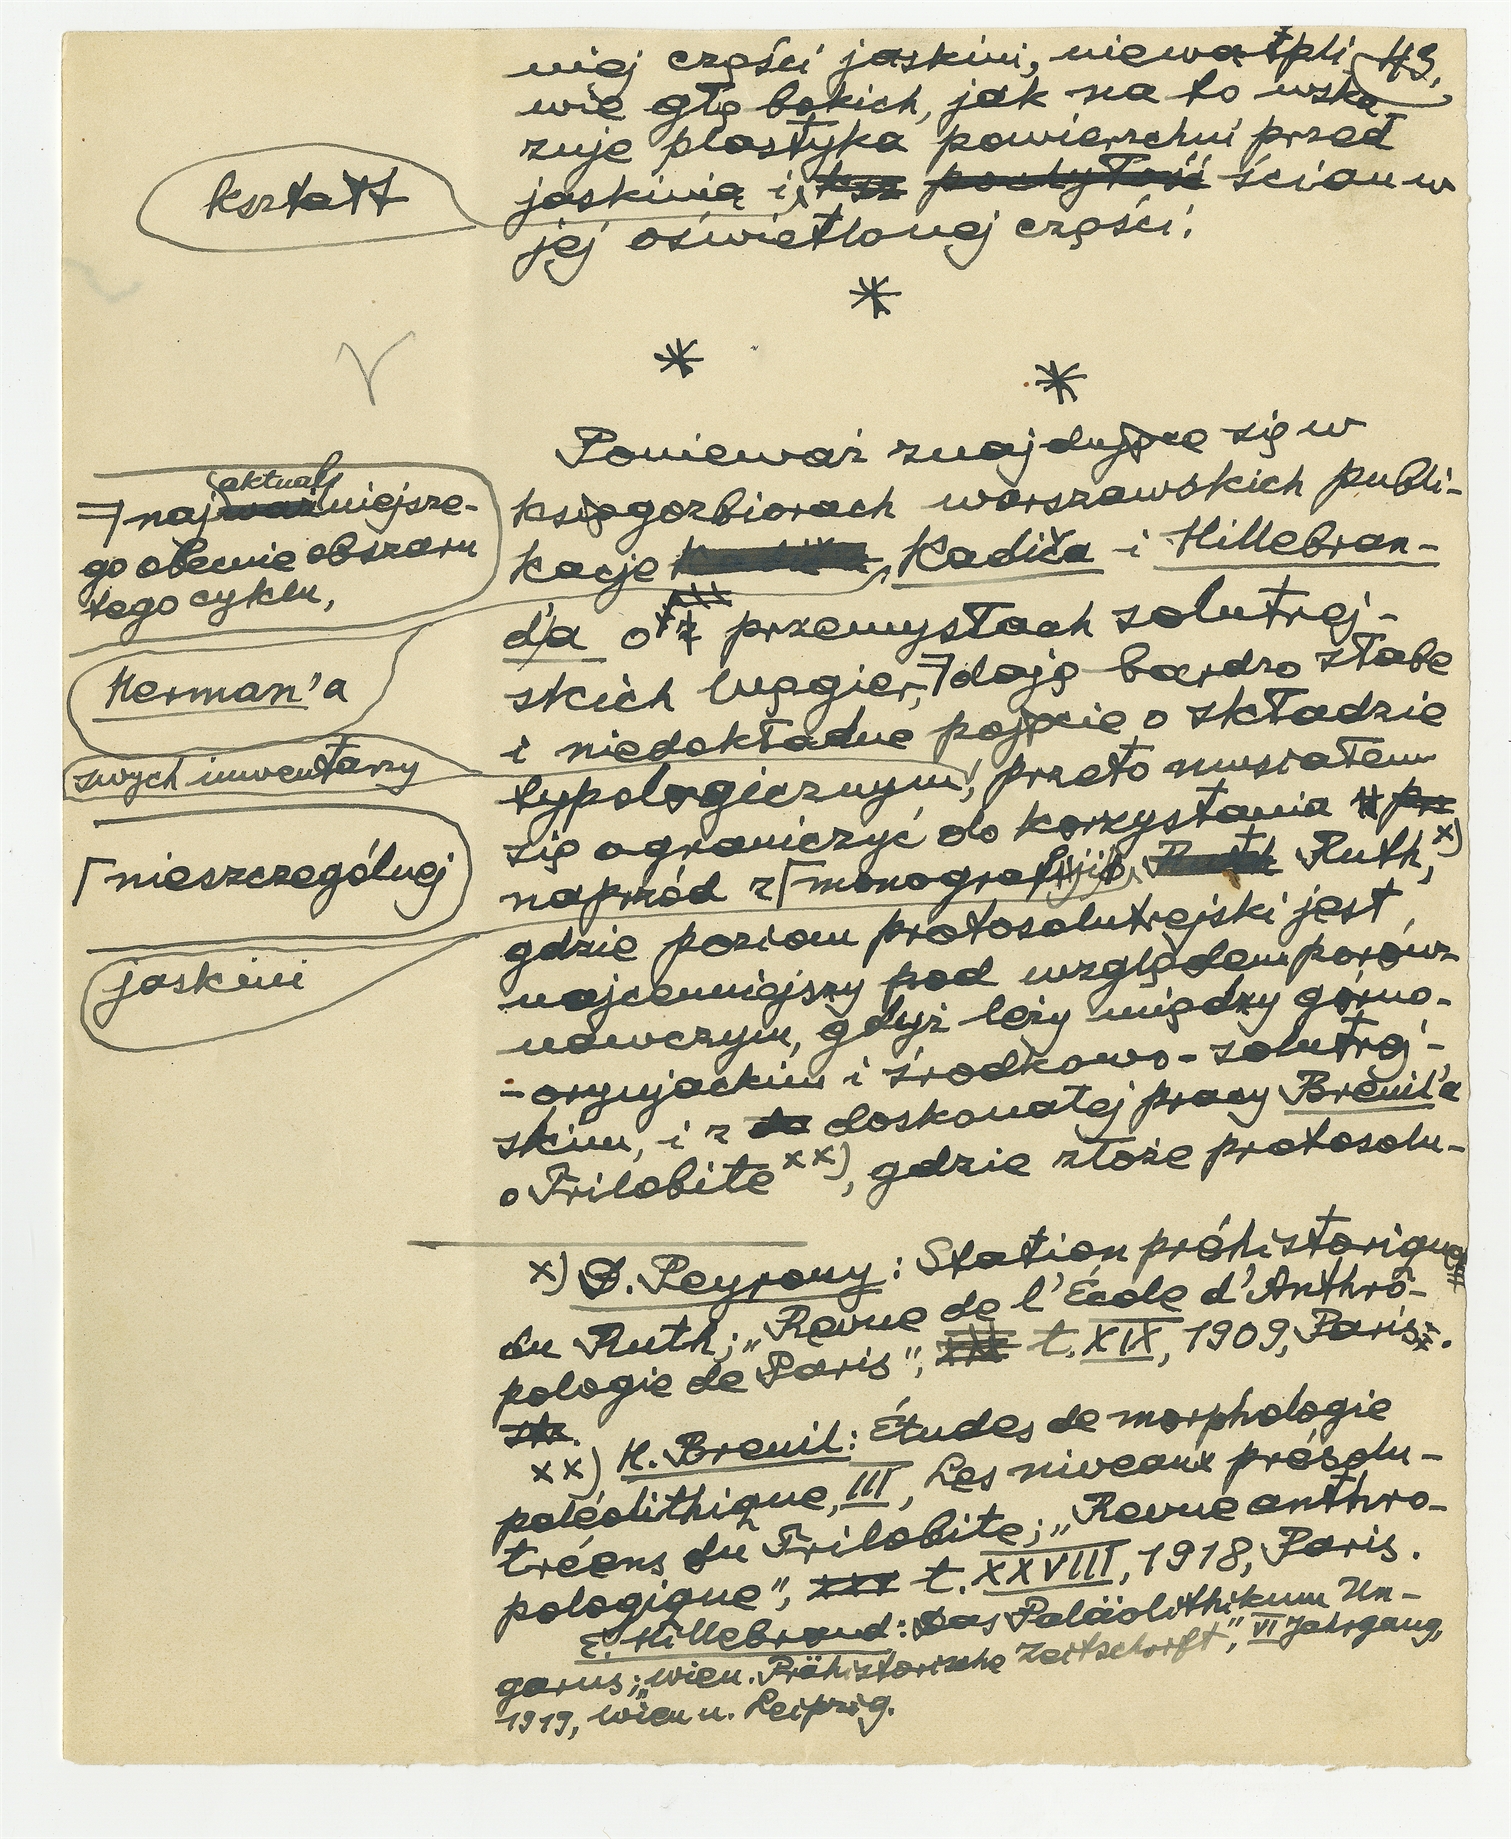 niej części jaskini, niewątpli 43.
wie głębokich, jak na to wska
zuje plastyka powierzchni przed
kształt
jaskinią i ścian w
jej oświetlonej części.
*
* *
Ponieważ znajdujące się w
księgozbiorach warszawskich publi-
aktual
=| najniejsze-
go obecnie obszaru
tego cyklu,
kacje Kadića i Hillebran-
d'a o przemysłach solutrej-
skich Węgier, =| dają bardzo słabe
Herman'a
i niedokładne pojęcie o składzie
zwych inwentarzy
typologicznym, przeto musiałem
się ograniczyć do korzystania
⌈ nieszczególnej
naprzód z ⌈ monografji Ruth, x)
gdzie poziom protosolutrejski jest
jaskini
najcenniejszy pod względem porów-
nawczym, gdyż leży między górno-
-oryniackim i środkowo-solutrej-
skim, i z doskonałej pracy Breuil'a
o Trilobite xx), gdzie złoże protosolu-
x) D. Peyrony: Station préhistorique
du Ruth; „Revue de l'École d'Anthro-
pologie de Paris", t. XIX, 1909, Paris.
xx) H. Breuil: Études de morphologie
paléolithique, III, Les niveaux présolu-
tréens du Trilobite; „Revue anthro-
pologique", t. XXVIII, 1918, Paris.
E. Hillebrand: Das Paläolithikum Un-
garns; „Wien. Prähistorische Zeitschrift", VI Jahrgang,
1919, Wien u. Leipzig.